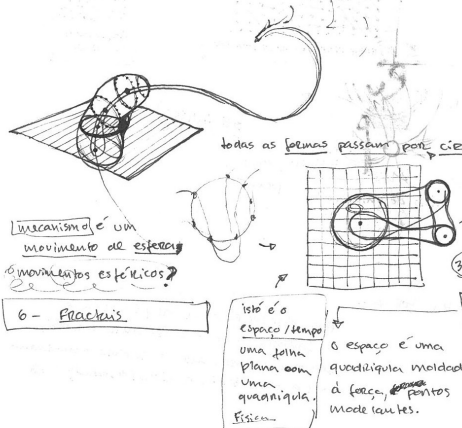 todas as formas passam por cir
mecanismo é um
movimento de esferas
movimentos esféricos?
6 - Fractais
isto é o
espaço/tempo
uma folha
plana com
uma
quadrigula.
Física
o espaço é uma
quadrigula moldad
à força, pontos
modelantes.
3